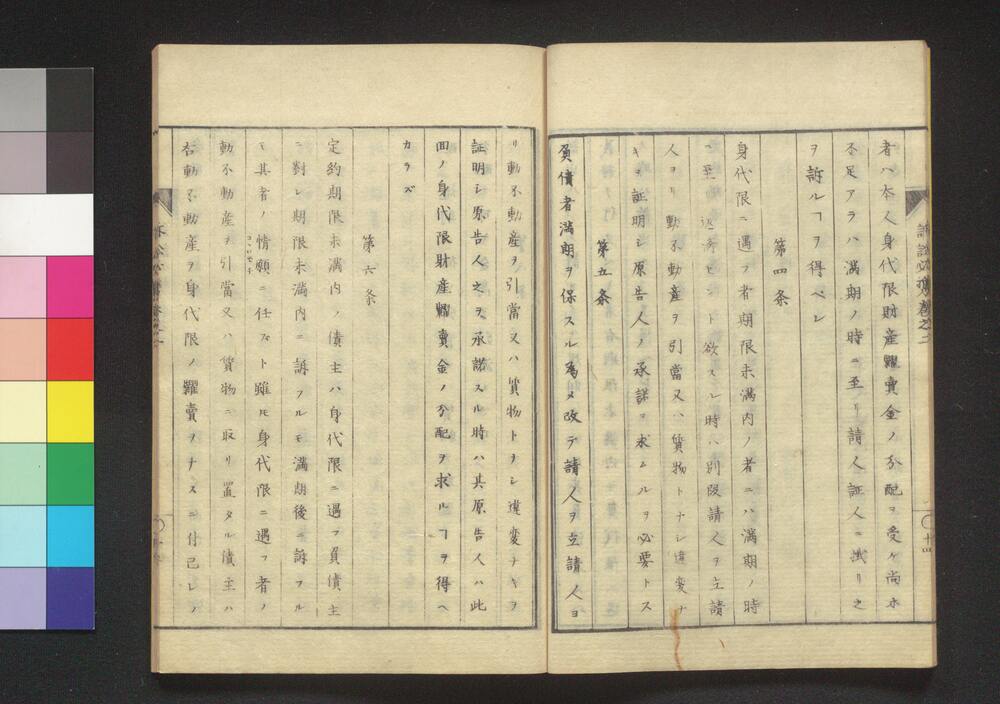 者ハ本人身代限財産糶賣金ノ分配ヲ受ケ尚ホ
不足アラハ満期ノ時ニ至リ請人証人ニ掛リ之
ヲ訴ルヿヲ得ベシ
第四条
身代限ニ遇フ者期限未満内ノ者ニハ満期ノ時
ニ至 返済セシト欲スル時ハ別段請人ヲ立請
人ヨリ動不動産ヲ引當又ハ質物トナシ違変ナ
キヲ証明シ原告人ノ承諾ヲ求ムルヲ必要トス
第五条
負債者満期ヲ保スル為メ改テ請人ヲ立請人ヨ
リ動不動産ヲ引當又ハ質物トナシ違変ナキヲ
証明シ原告人之ヲ承諾スル時ハ其原告人ハ此
回ノ身代限財産糶賣金ノ分配ヲ求ルヿヲ得ヘ
カラズ
第六条
定約期限未満内ノ債主ハ身代限ニ遇フ負債主
ニ對シ期限未満内ニ訴フルモ満期後ニ訴フル
モ其者ノ情願ニ任スト雖モ身代限ニ遇フ者ノ
動不動産ヲ引當又ハ質物ニ取リ置タル債主ハ
右動不動産ヲ身代限ノ糶賣ヲナスニ付己レノ